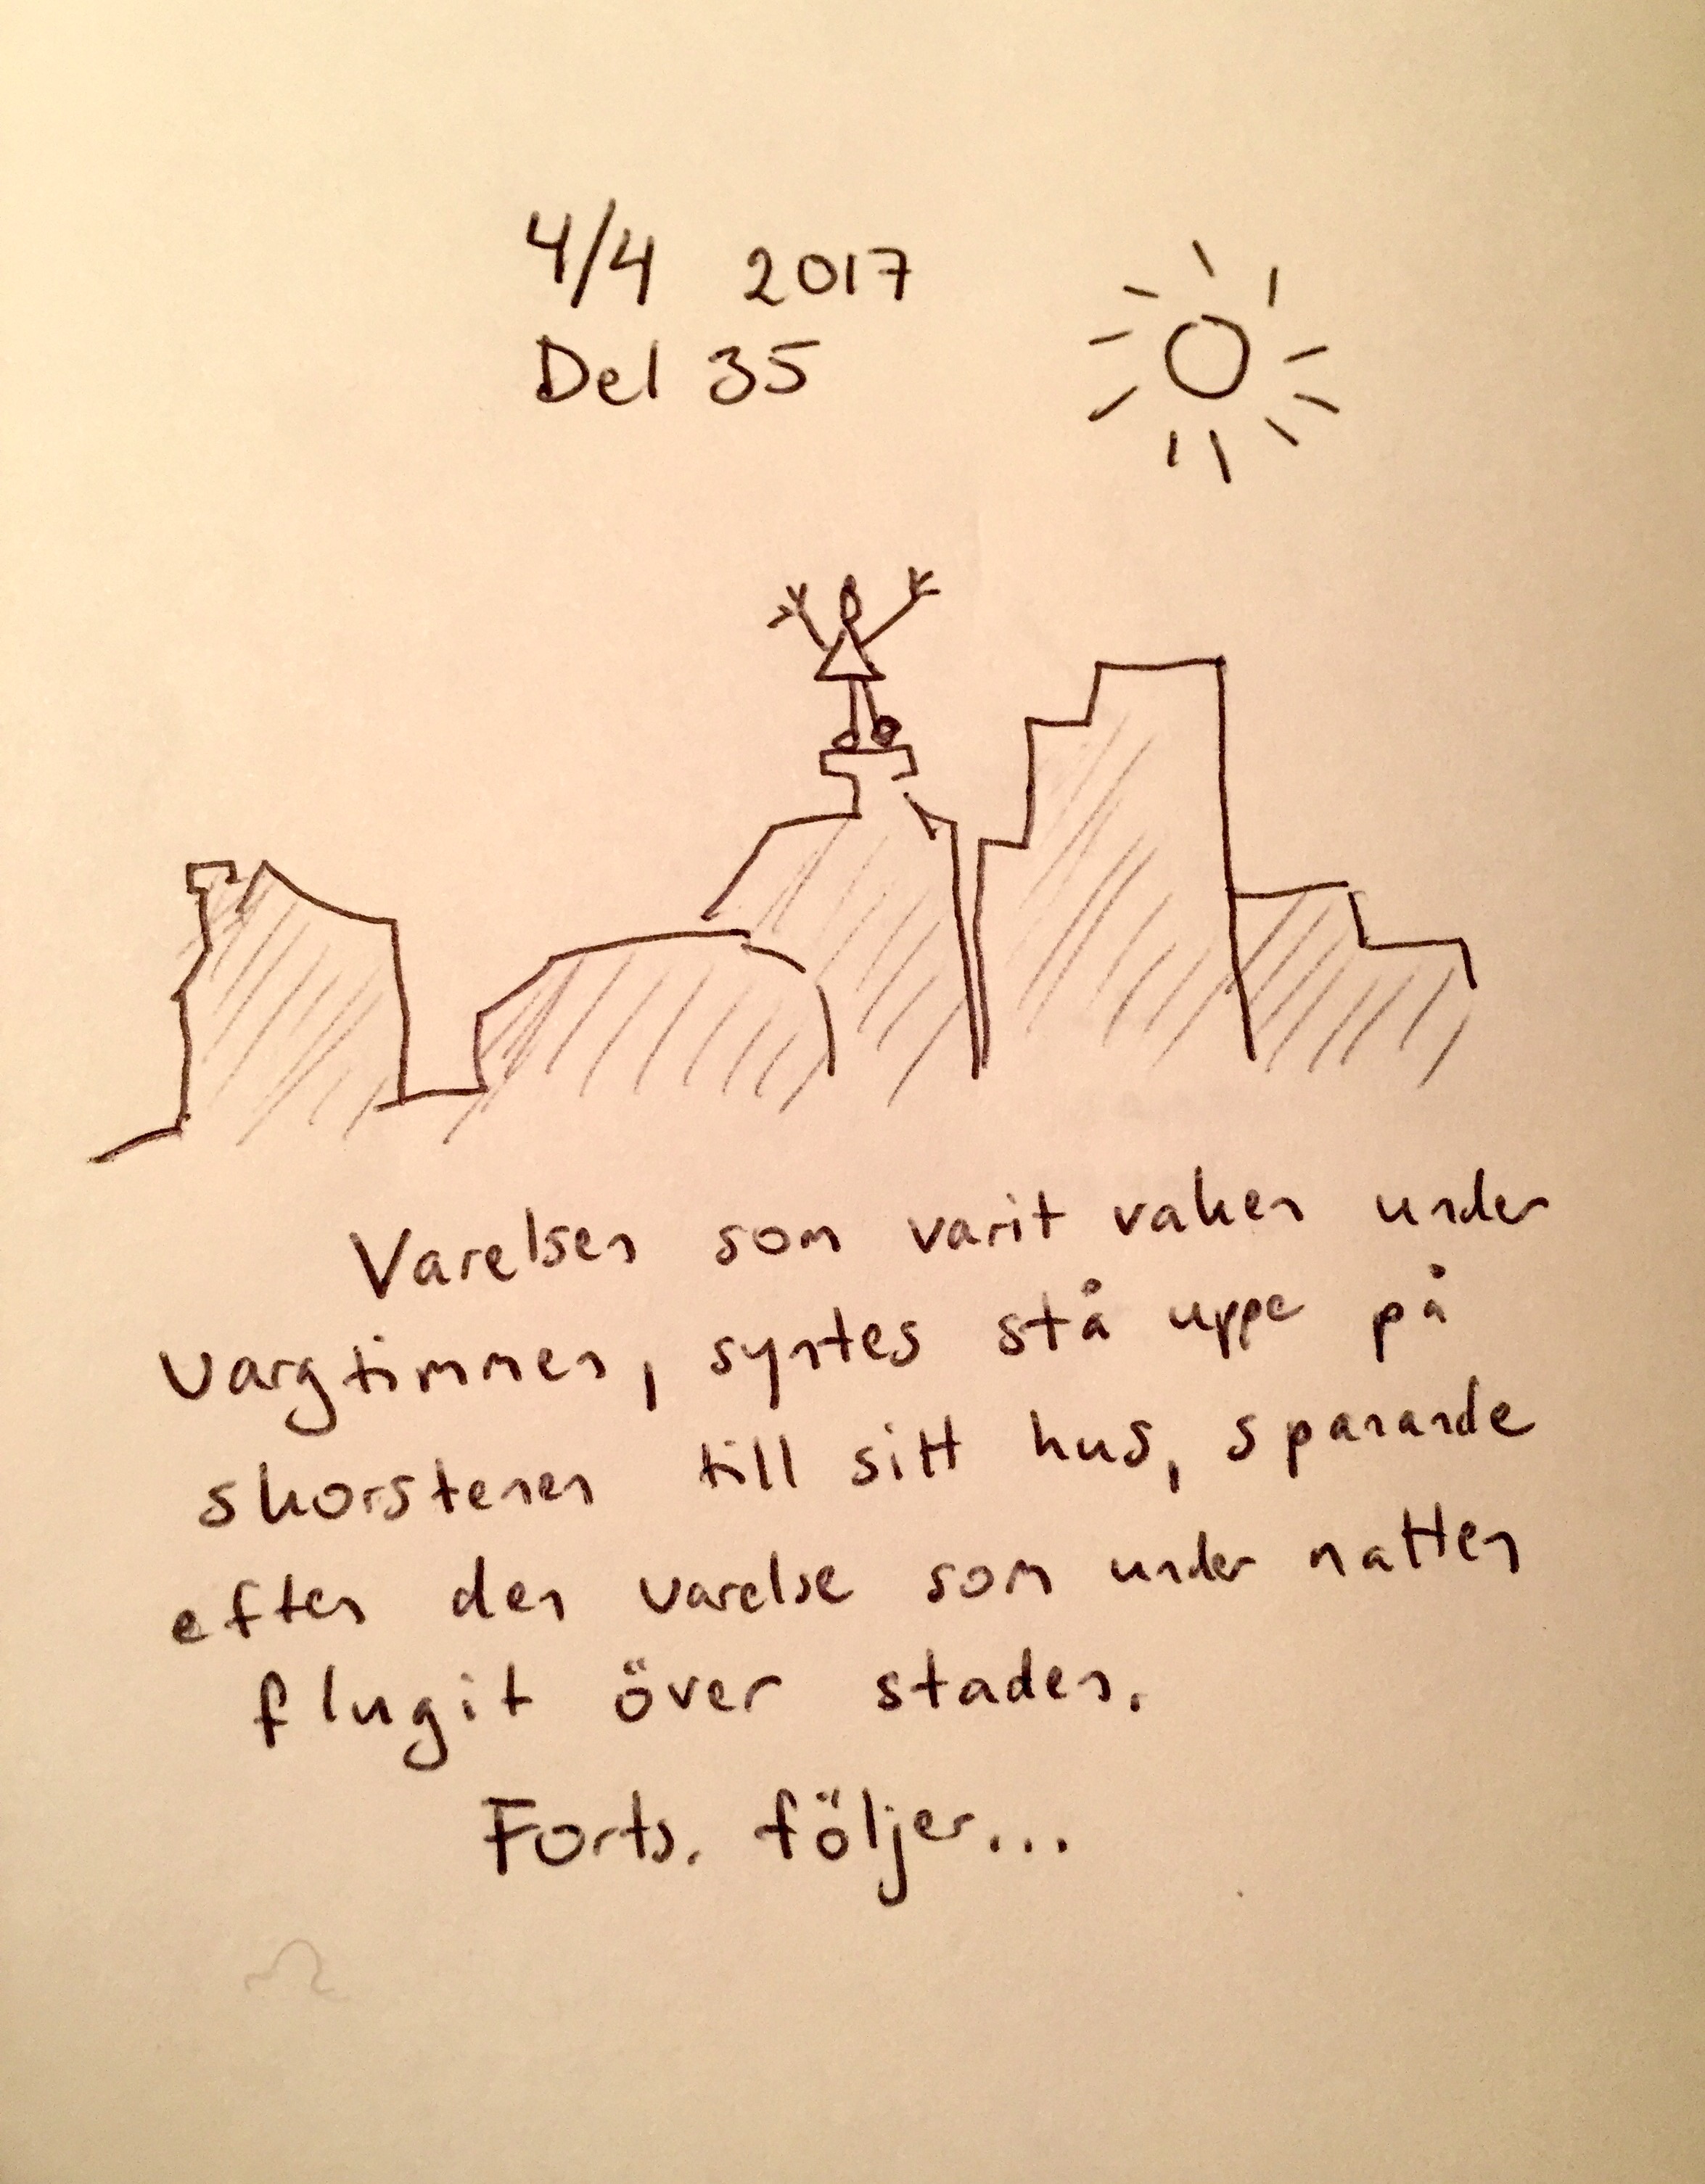 4/4 2017
Del 35
Varelsen som varit vaken under
vargtimmen, syntes stå uppe på
skorstenen till sitt hus, spanande
efter den varelse som under natten
flugit över staden.
Forts. följer...